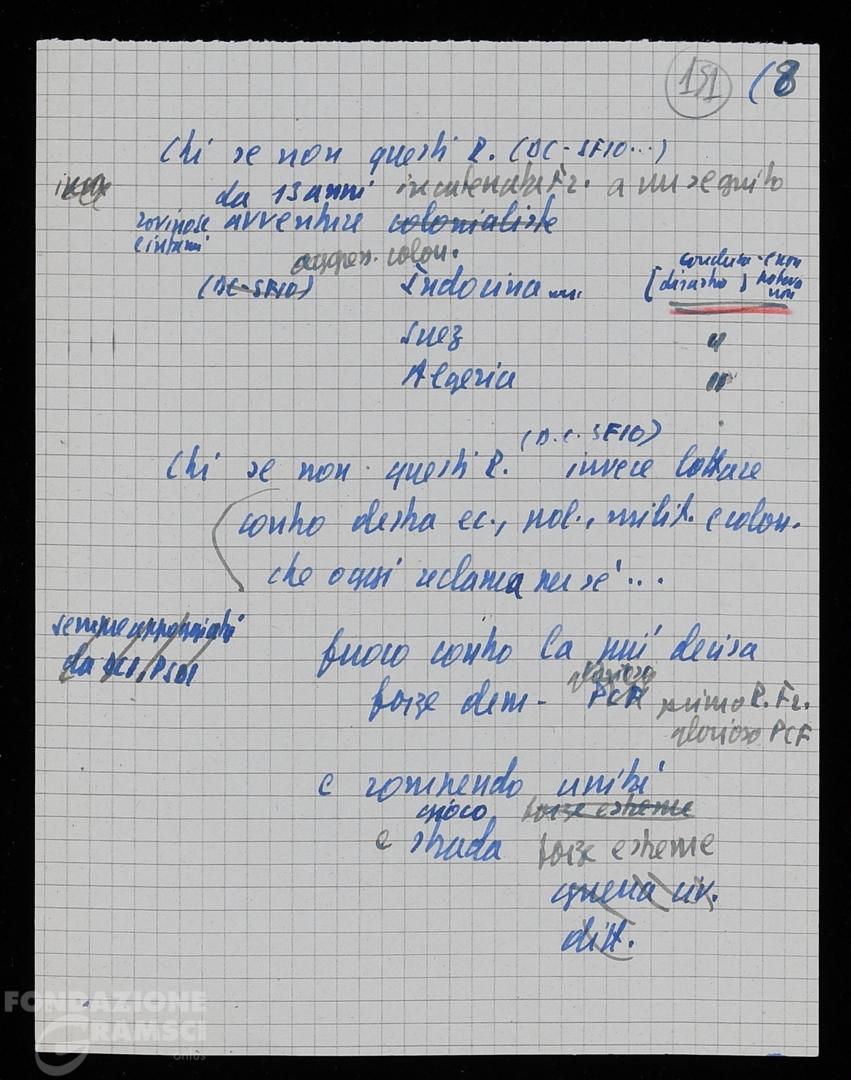 151 (8
Chi se non questi P. (DC-SFIO...)
da 13 anni incatenata Fr. a un seguito
rovinose avventure colonialiste
e infami
aggres. colon.
(DC-SFIO) Indocina
[disastro] poteva
non
Suez "
Algeria "
(D.C. SFIO)
Chi se non questi P. invece lottare
contro destra ec., pol., milit. e colon.
che oggi reclama per sé...
sempre appoggiati
da DCI, PSDI
fuoco contro la più decisa
glorioso
forze dem- PCF primo P. Fr.
glorioso PCF
e rompendo unità
gioco forze estreme
e strada forze estreme
guerra civ.
ditt.
FONDAZIONE
GRAMSCI
onlus